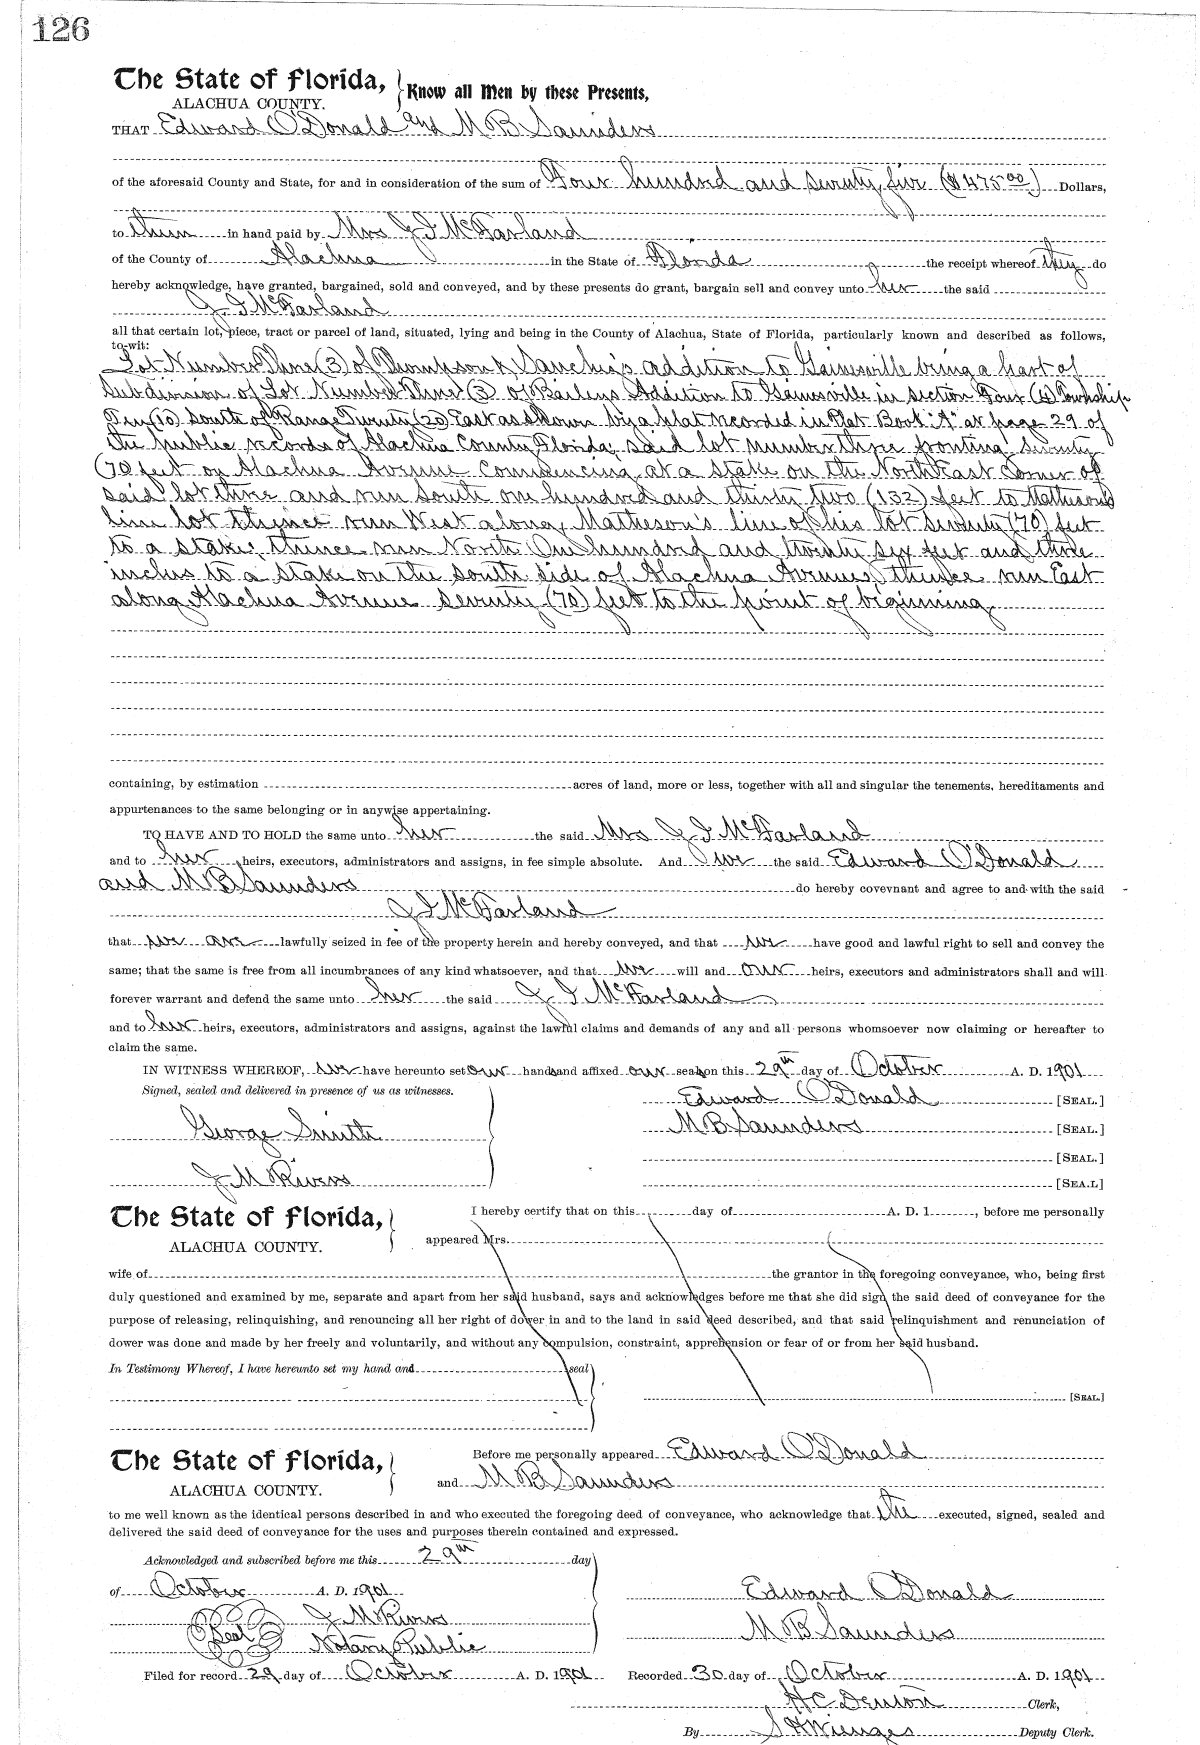 126
The State of Florida,
ALACHUA COUNTY.
Know all Men by these Presents,
THAT Edward O'Donald and M B Saunders
of the aforesaid County and State, for and in consideration of the sum of Four hundred and seventy five ($475.00) Dollars,
to them in hand paid by Mrs J J McFarland
of the County of Alachua in the State of Florida the receipt whereof they do
hereby acknowledge, have granted, bargained, sold and conveyed, and by these presents do grant, bargain sell and convey unto her the said
J J McFarland
all that certain lot, piece, tract or parcel of land, situated, lying and being in the County of Alachua, State of Florida, particularly known and described as follows,
to-wit:
Lot Number Three (3) of Thompson & Sanchez's addition to Gainesville being a part of
Subdivision of Lot Number Three (3) of Baileys Addition to Gainesville in section Four (4) Township
Ten (10) South of Range Twenty (20) East as shown by a plat recorded in Plat Book "A" at page 29 of
the public records of Alachua County Florida, said lot number three fronting seventy
(70 feet on Alachua Avenue Commencing at a stake on the North East Corner of
said lot three and run South one hundred and thirty two (132) feet to Matheson's
line lot thence run West along Matheson's line of his lot seventy (70) feet
to a stake, thence run North One hundred and twenty six feet and three
inches to a stake on the south side of Alachua Avenue, thence run East
along Alachua Avenue seventy (70) feet to the point of beginning
containing, by estimation acres of land, more or less, together with all and singular the tenements, hereditaments and
appurtenances to the same belonging or in anywise appertaining.
TO HAVE AND TO HOLD the same unto her the said Mrs J J McFarland
and to her heirs, executors, administrators and assigns, in fee simple absolute. And we the said Edward O'Donald
and M B Saunders do hereby covevnant and agree to and with the said
J J McFarland
that we are lawfully seized in fee of the property herein and hereby conveyed, and that we have good and lawful right to sell and convey the
same; that the same is free from all incumbrances of any kind whatsoever, and that we will and our heirs, executors and administrators shall and will
forever warrant and defend the same unto her the said J J McFarland
and to her heirs, executors, administrators and assigns, against the lawful claims and demands of any and all persons whomsoever now claiming or hereafter to
claim the same.
IN WITNESS WHEREOF, we have hereunto set our hands and affixed our seals on this 29th day of October A. D. 1901
Signed, sealed and delivered in presence of us as witnesses.
Edward O'Donald [SEAL.]
George Smith
M B Saunders [SEAL.]
[SEAL.]
J M Rivers
[SEA.L]
The State of Florida,
ALACHUA COUNTY.
I hereby certify that on this day of A. D. 1 , before me personally
appeared Mrs.
wife of the grantor in the foregoing conveyance, who, being first
duly questioned and examined by me, separate and apart from her said husband, says and acknowledges before me that she did sign the said deed of conveyance for the
purpose of releasing, relinquishing, and renouncing all her right of dower in and to the land in said deed described, and that said relinquishment and renunciation of
dower was done and made by her freely and voluntarily, and without any compulsion, constraint, apprehension or fear of or from her said husband.
In Testimony Whereof, I have hereunto set my hand and seal
[SEAL.]
The State of Florida,
ALACHUA COUNTY.
Before me personally appeared Edward O'Donald
and M B Saunders
to me well known as the identical persons described in and who executed the foregoing deed of conveyance, who acknowledge that the executed, signed, sealed and
delivered the said deed of conveyance for the uses and purposes therein contained and expressed.
Acknowledged and subscribed before me this 29th day
of October A. D. 1901
Edward O'Donald
Seal J M Rivers
Notary Public
M B Saunders
Filed for record 29 day of October A. D. 1901
Recorded 30 day of October A. D. 1901
H C Denton Clerk,
By S H Wienges Deputy Clerk.